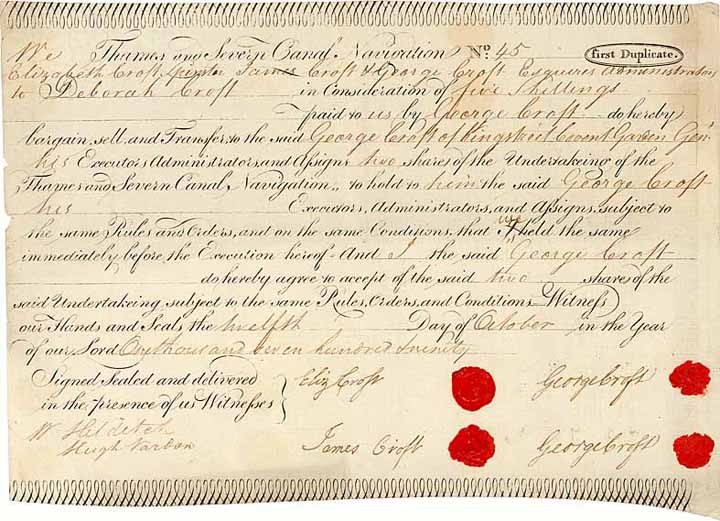 Thames and Severn Canal Navigation No. 45 first Duplicate.
We
Elizabeth Croft James Croft & George Croft Esquires Administrators
to Deborah Croft in Consideration of five Shillings
paid to us by George Croft do hereby
bargain, sell, and Transfer, to the said George Croft of Kingstreet Covent Garden Gen
his Executors, Administrators, and Assigns two shares of the Undertakeing of the
Thames and Severn Canal Navigation, to hold to him the said George Croft
his Executors, Administrators, and Assigns, subject to
the same Rules and Orders, and on the same Conditions, that we held the same
immediately before the Execution hereof. And I the said George Croft
do hereby agree to accept of the said two shares of the
said Undertakeing, subject to the same Rules, Orders, and Conditions Witness
our Hands and Seals the twelfth Day of October in the Year
of our Lord One thousand seven hundred & ninety
Signed Sealed and delivered
in the presence of us Witnesses
Eliz Croft George Croft
W Hilditch
Hugh Vardon
James Croft George Croft